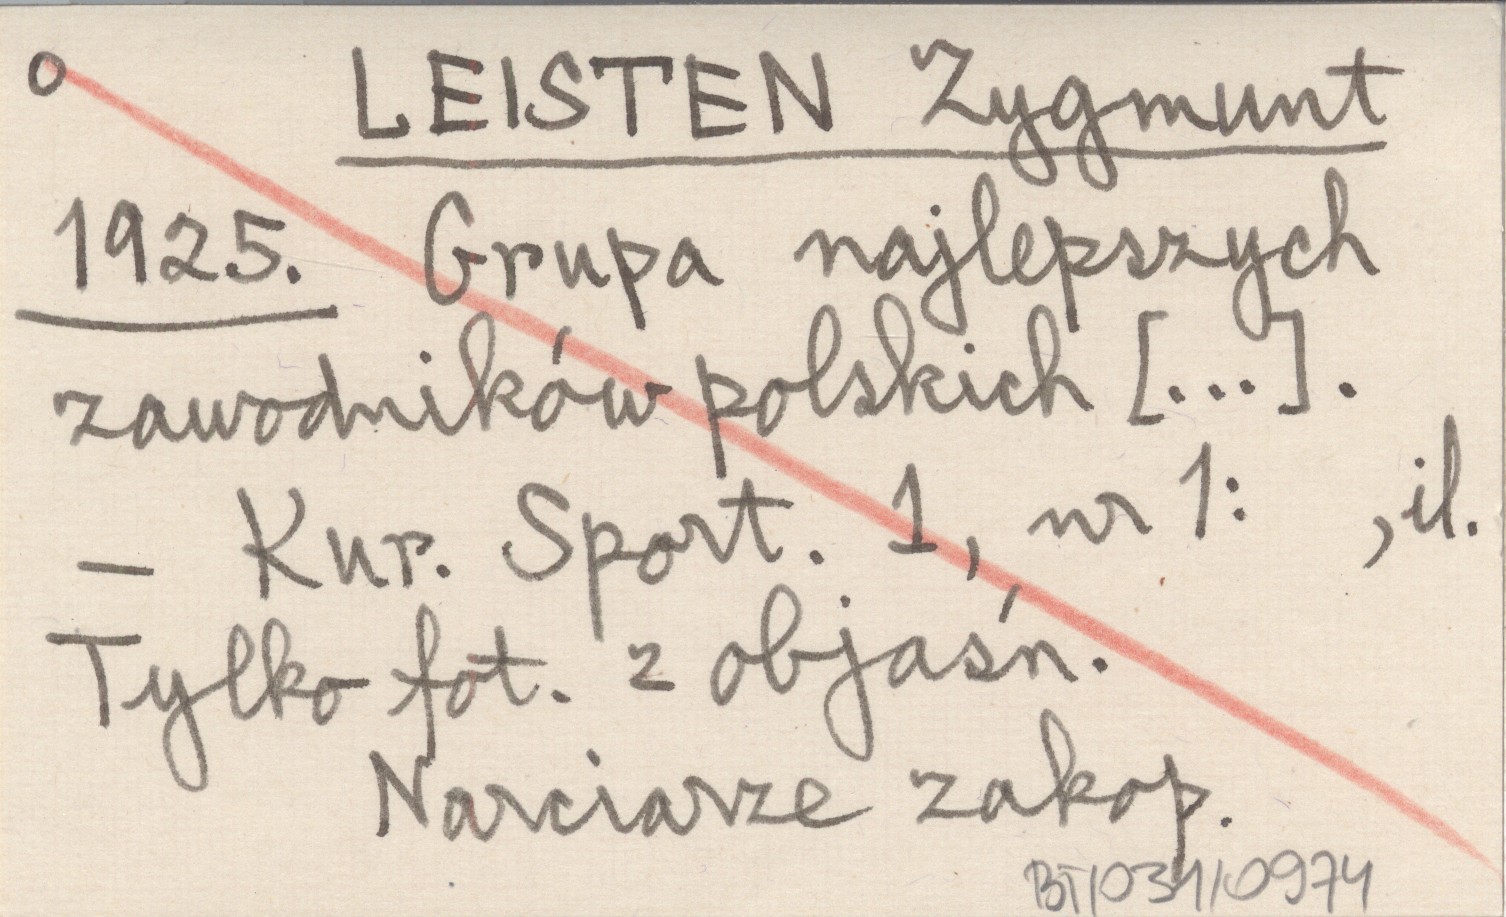 o LEISTEN Zygmunt
1925. Grupa najlepszych
zawodników polskich [...].
– Kur. Sport. 1, nr 1: , il.
Tylko fot. z objaśn.
Narciarze zakop.
BT/031/0974